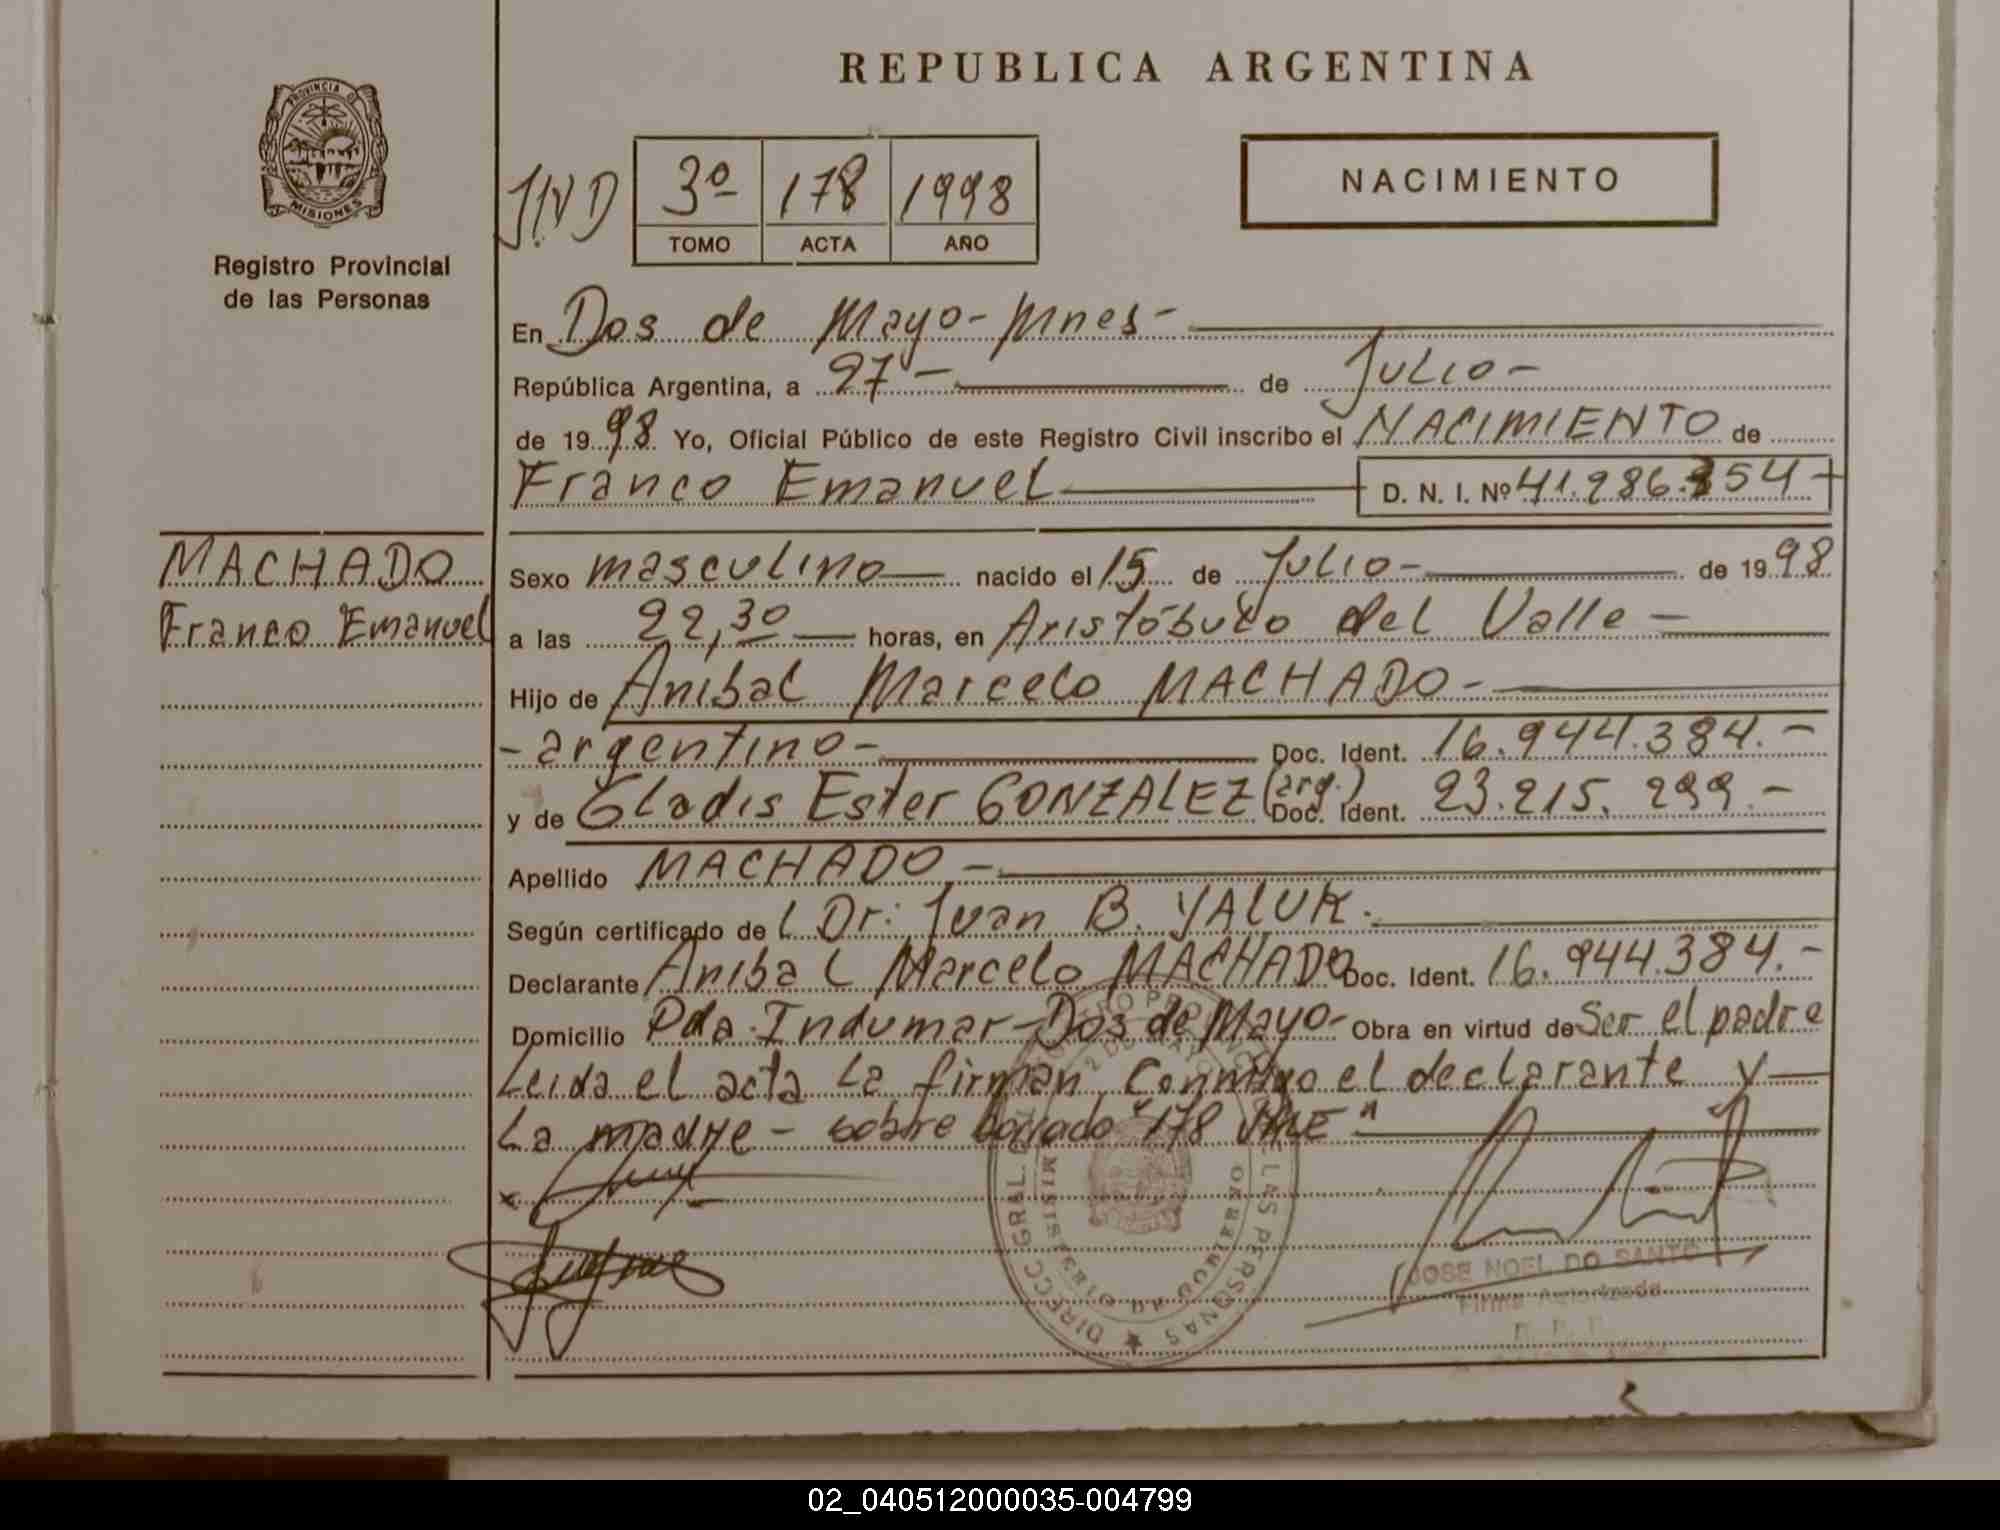 REPUBLICA ARGENTINA
PROVINCIA DE
MISIONES
Registro Provincial
de las Personas
3º 178 1998
TOMO ACTA AÑO
NACIMIENTO
En Dos de Mayo - Mnes -
República Argentina, a 27 - de Julio -
de 1998 Yo, Oficial Público de este Registro Civil inscribo el NACIMIENTO de
Franco Emanuel D. N. I. Nº 41.286.354
MACHADO
Franco Emanuel
Sexo masculino nacido el 15 de Julio - de 1998
a las 22,30 horas, en Aristóbulo del Valle -
Hijo de Anibal Marcelo MACHADO -
- argentino - Doc. Ident. 16.944.384. -
y de Gladis Ester GONZALEZ (arg.) Doc. Ident. 23.215.299. -
Apellido MACHADO -
Según certificado del Dr: Juan B. YALUK.
Declarante Anibal Marcelo MACHADO Doc. Ident. 16.944.384. -
Domicilio Pda. Indumar - Dos de Mayo - Obra en virtud de Ser el padre
Leida el acta la firman conmigo el declarante y
La madre - sobre borrado "178
DIRECC. GRAL. DEL REGISTRO PROVINCIAL DE LAS PERSONAS
2 DE MAYO
MISIONES
JOSE NOEL DO SANTO
Firma Autorizada
02_040512000035-004799